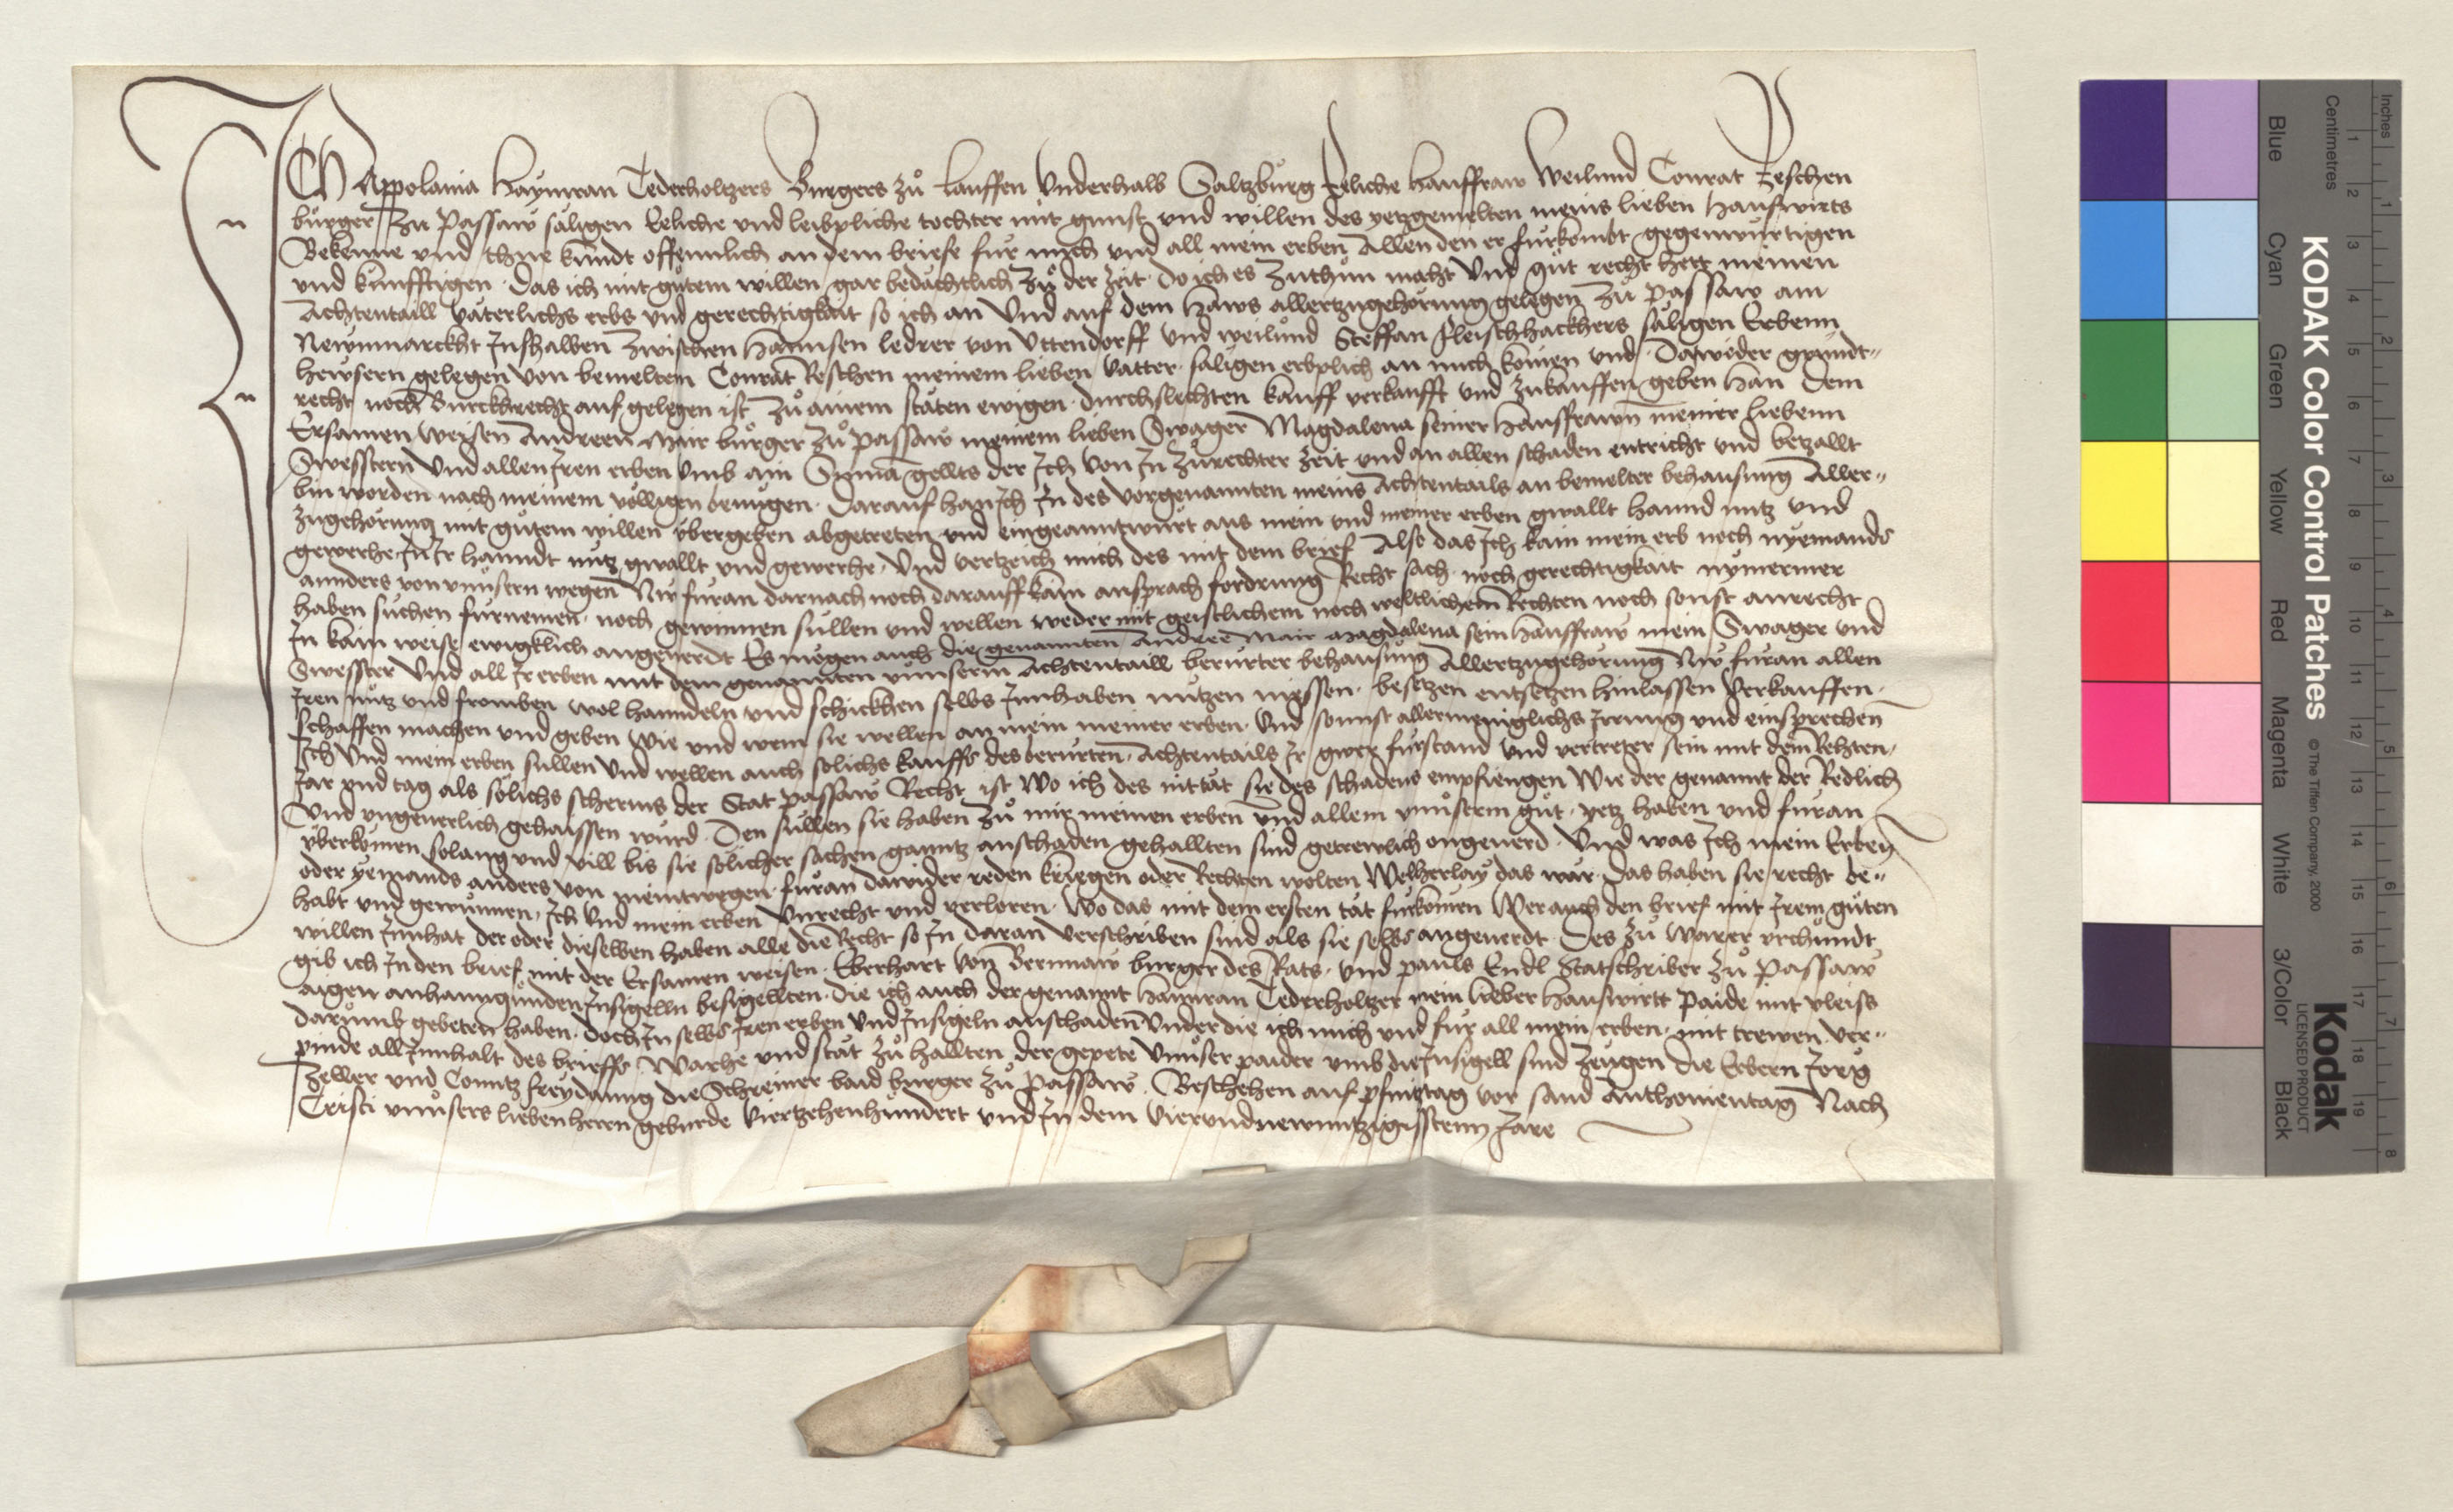 ICH Appolania Haymran Tederholtzers Burgers zů Lauffen Underhalb Saltzburg Eeliche hausfraw Weilund Conrat Reschen
burger zu Passaw säligen Eeliche und leibpliche tochter mit gunst und willen des yetzgemelten meins lieben hauswirts
Bekenne und thue kundt offennlich an dem briefe für mich und all mein erben Allen den er fürkombt gegenwürtigen
und künfftigen. Das ich mit gůtem willen gar bedächtlich Zů der zeit. Do ich es zuthůn macht Und gůt recht hett meinen
Achtentaill väterlichs erbs und gerechtigkait so ich an Und auf dem haws allertzugehörung gelegen zů Passaw am
Newnmarckht Inshalben zwischen Hannsen ledrer von Uttendorff und weilund Steffan Fleischhackhers säligen Erbenn
hewsern gelegen von bemeltem Conrat Reschen meinem lieben Vatter säligen erbplich an mich komen und. Dawider grundt-
recht noch Burckhrecht auf gelegen ist zů ainem stäten ewigen. durchslechten kauff verkaufft und zukauffen geben han Dem
Ersamen Weisen Andreen Mair burger zů Passaw meinem lieben Swager Magdalena seiner hausfrawn meiner liebenn
Swesstern Und allen Iren erben Umb ain Summa gellts der Ich von In zů rechter zeit und an allen schaden entricht und betzallt
bin worden nach meinem völligen benügen. Darauf han Ich In des vorgenannten meins Achtentails an bemelter behausung Aller-
zugehörung mit gůtem willen übergeben abgetreten und eingeanntwürt aus mein und meiner erben gwallt hannd nutz und
gewerhe In Ir hanndt nutz gwallt und gewerhe. Und vertzeich mich des mit dem brief Also das Ich kain mein erb noch nyemands
annders von unnsern wegen Nw füran darnach noch darauff kain ansprach fordrung Recht sach. noch gerechtigkait nymermer
haben suchen fürnemen. noch gewinnen süllen und wellen weder mit geistlichem noch weltlichem Rechten noch sonst anrecht
In kain weise ewigklich angeverdt Es mögen auch die genannten Andree Mair Magdalena sein hausfraw mein Swager und
Swesster Und all Ir erben mit dem genannten unnserm Achtentaill berürter behausung Allertzugehörung Nw füran allen
Iren nutz und fromben wol hanndeln und schickhen selbs Innhaben nützen niessen. besetzen entsetzen hinlassen Verkauffen.
schaffen machen und geben Wie und wem sie wellen an mein meiner erben. Und sonnst allermeniglichs Irrung und einsprechen
Ich Und mein erben süllen Und wellen auch solichs kauffs des berürten Achtentails Ir gwer fürstand und vertreter sein mit dem Rechten.
Jar und tag als solichs scherms der Stat Passaw Recht ist Wo ich des nit tät sie des schadens empfiengen Wie der genannt der Redlich
Und ungeverlich gehaissen würd. Den süllen sie haben zů mir meinen erben und allem unnserm gůt. yetz haben und füran
überkomen solang und vill bis sie solicher sachen ganntz anschaden gehallten sind getrewlich ongeverd. Und was Ich mein Erben
oder yemands anders von meintwegen. füran dawider reden kriegen oder Rechten wolten Welherlay das wär. Das haben sie recht be-
habt und gewunnen. Ich Und mein erben Unrecht und verloren. Wo das mit dem ersten tät fürkomen Wer auch den brief mit Irem gůten
willen Innhat der oder dieselben haben alle die Recht so In daran verschriben sind als sie selbs angeverdt. Des zů warer urchundt
gib ich In den brief mit der Ersamen weisen. Eberhart von Bernnaw burger des Rats. und pauls Endl Statschriber zů Passaw
aigen anhanngunden Insigelln besigellten. die ich auch der genannt Haymran Tederholtzer mein lieber hauswirtt paide mit vleiss
darumb gebeten haben. doch In selbs Iren erben und Insigeln anschaden Under die ich mich und für all mein erben. mit trewen ver-
pinde all Innhalt des brieffs Warhe und stät zů hallten der gepete Unnser paider umb die Insigell sind zeugen Die Erbern Jorg
Zeller und Conntz Freydanng die Schreiner baid burger zů Passaw. Beschehen auf pfintztag vor sand Anthonientag Nach
Cristi unnsers lieben herrn geburde Viertzehenhundert und In dem Vierundnewntzigisstenn Jare
KODAK Color Control Patches © The Tiffen Company, 2000
Kodak
LICENSED PRODUCT
Blue Cyan Green Yellow Red Magenta White 3/Color Black
Centimetres 1 2 3 4 5 6 7 8 9 10 11 12 13 14 15 16 17 18 19
Inches 1 2 3 4 5 6 7 8